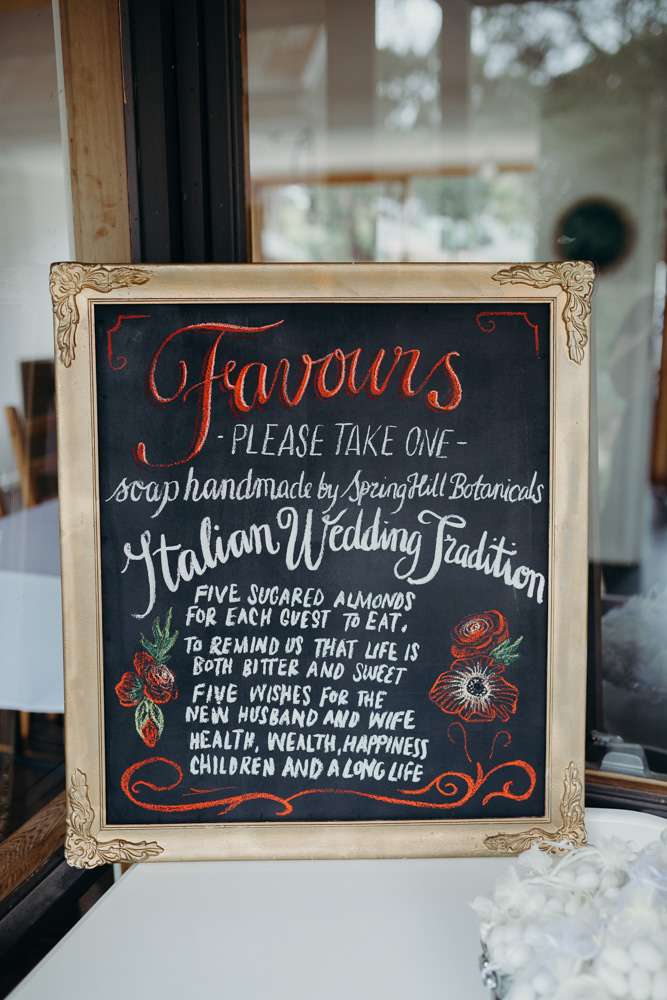 Favours
- PLEASE TAKE ONE -
soap handmade by SpringHill Botanicals
Italian Wedding Tradition
FIVE SUGARED ALMONDS
FOR EACH GUEST TO EAT,
TO REMIND US THAT LIFE IS
BOTH BITTER AND SWEET
FIVE WISHES FOR THE
NEW HUSBAND AND WIFE
HEALTH, WEALTH, HAPPINESS
CHILDREN AND A LONG LIFE